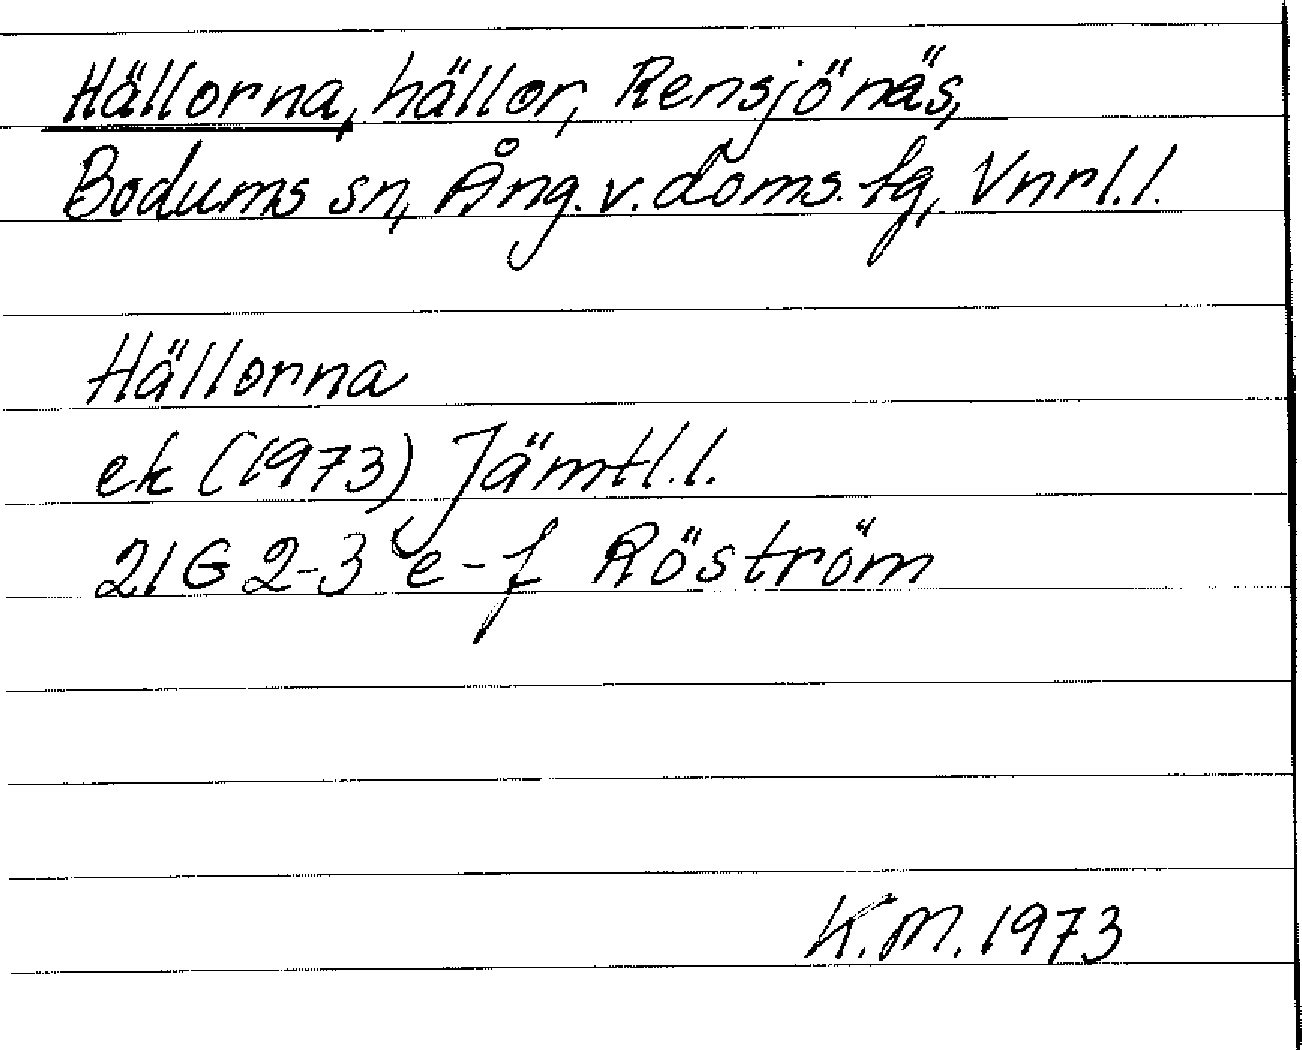 Hällorna, hällor, Rensjönäs,
Bodums sn, Ång. v. doms. tg, Vnrl. l.
Hällorna
ek (1973) Jämtl. l.
21G 2-3 e-f Röström
K.M. 1973